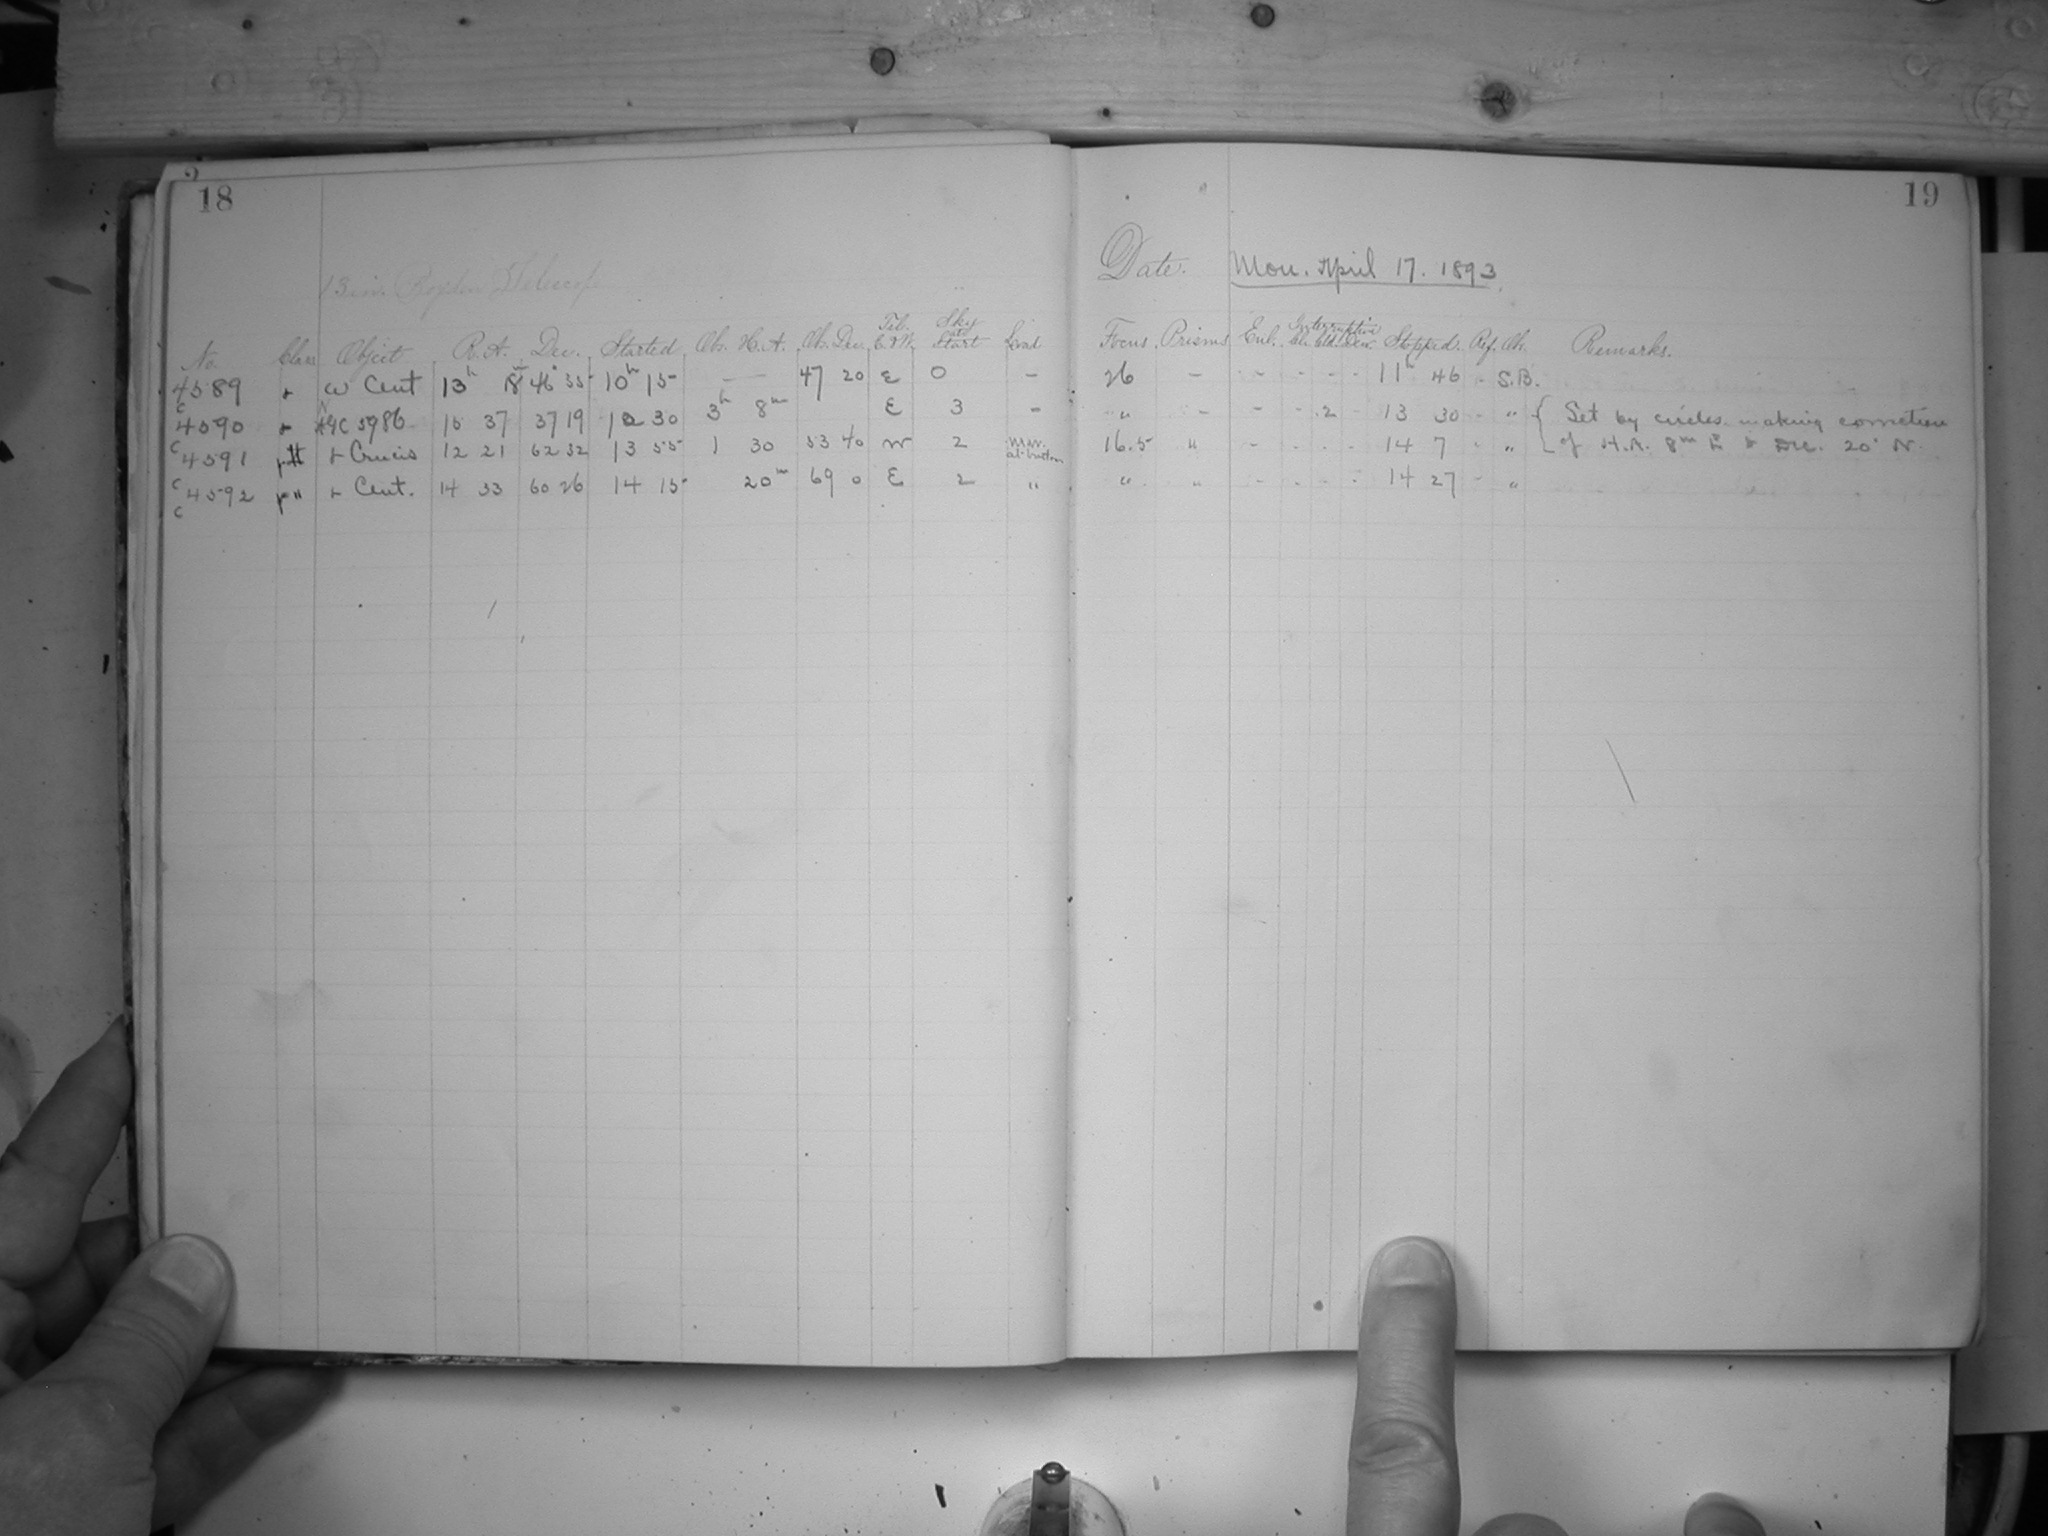 18
13 in. Boyden Telescope
No. Class Object R.A. Dec. Started Obs. H.A. Ob. Dec. Tel. E.W. Sky at Start
4589 ω Cent 13h 18m 46° 35 10h 15 — — 47 20 E 0 -
C 4590 5986 15 37 37 19 12 30 3h 8m E 3 -
C 4591 α Crucis 12 21 62 32 13 55 1 30 53 40 W 2
C 4592 α Cent. 14 33 60 26 14 15 20m 69 0 E 2 "
C
19
Date. Mon. April 17. 1893
Focus Prisms Enl. Stopped. Ob. Remarks.
26 - - - - - 11h 46 - S.B.
" - - - 2 13 30 - " { Set by circles making correction
16.5 " - - - - 14 7 - " of H.A. 8m E & Dec. 20' N.
" " - - - - 14 27 - "